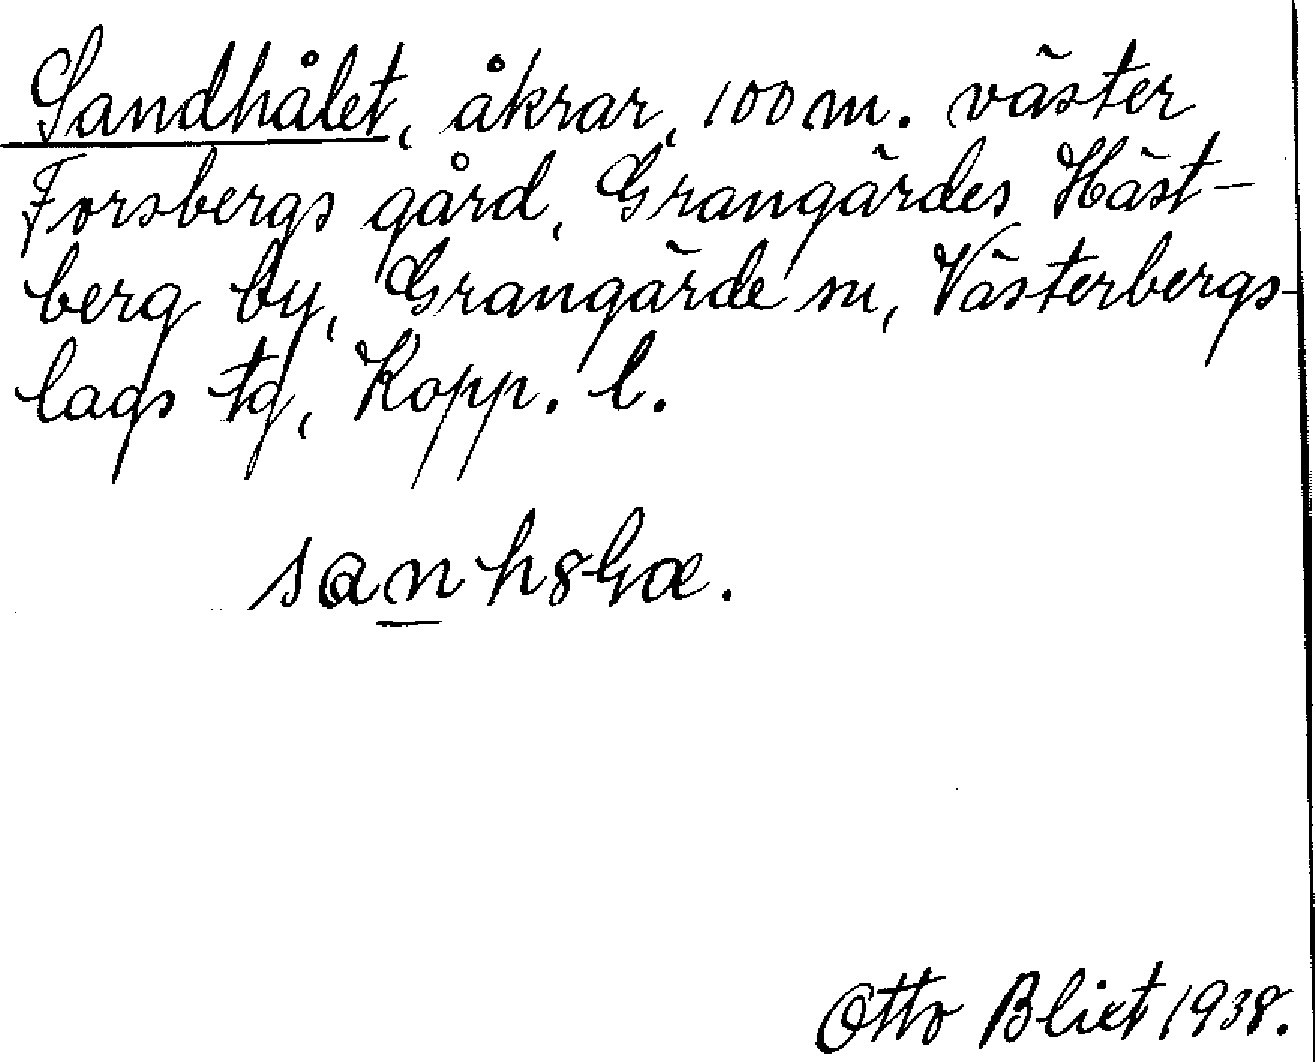 Sandhålet, åkrar, 100 m. väster
Forsbergs gård, Grangärdes Häst-
berg by, Grangärde sn, Västerbergs-
lags tg, Kopp. l.
Otto Blixt 1938.